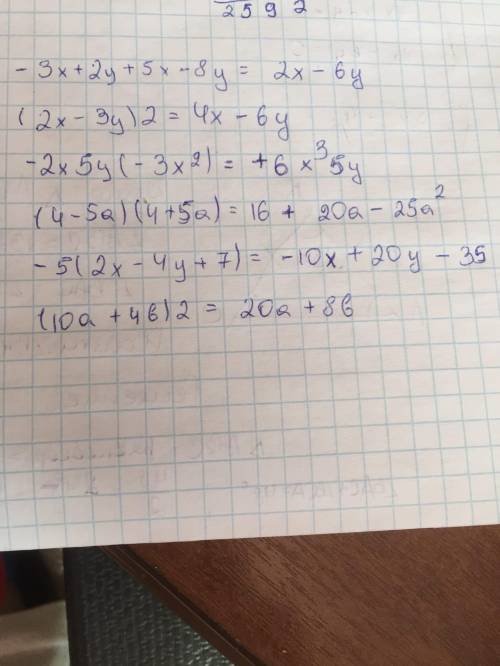 2592
- 3x + 2y + 5x - 8y = 2x - 6y
(2x - 3y)2 = 4x - 6y
-2x5y(-3x²) = +6x³5y
(4-5a)(4+5a) = 16 + 20a - 25a²
-5(2x - 4y + 7) = -10x + 20y - 35
(10a + 4б)2 = 20a + 8б